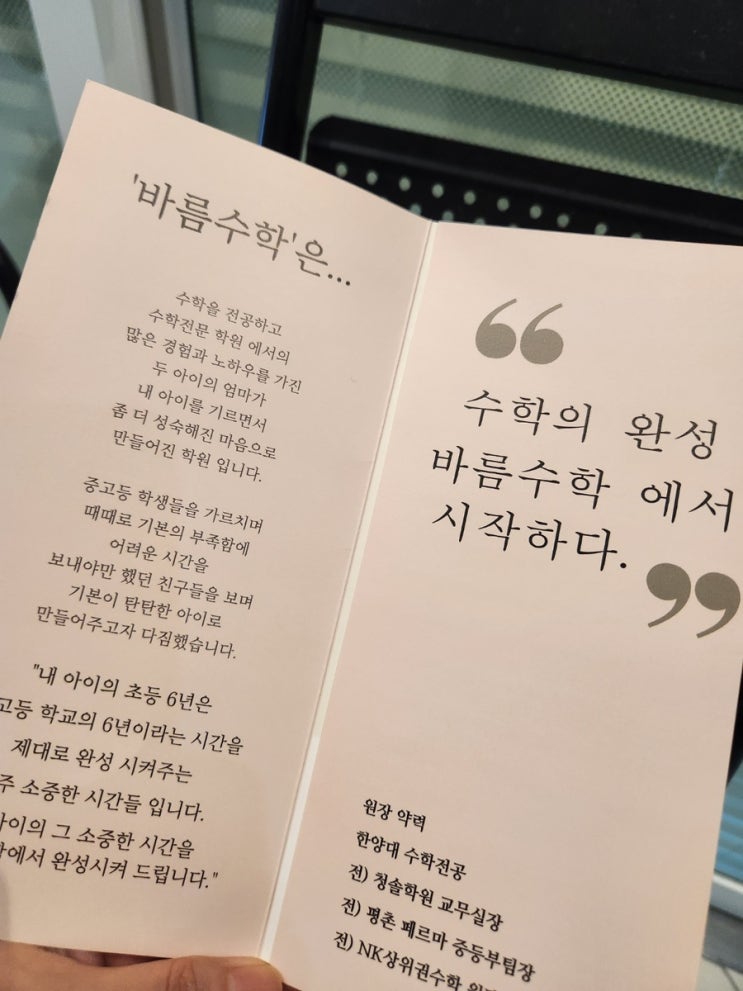 '바름수학'은...
수학을 전공하고
수학전문 학원 에서의
많은 경험과 노하우를 가진
두 아이의 엄마가
내 아이를 기르면서
좀 더 성숙해진 마음으로
만들어진 학원 입니다.
중고등 학생들을 가르치며
때때로 기본의 부족함에
어려운 시간을
보내야만 했던 친구들을 보며
기본이 탄탄한 아이로
만들어주고자 다짐했습니다.
"내 아이의 초등 6년은
고등 학교의 6년이라는 시간을
제대로 완성 시켜주는
소중한 시간들 입니다.
그 소중한 시간을
완성시켜 드립니다."
“
수학의 완성
바름수학 에서
시작하다.
”
원장 약력
한양대 수학전공
전) 청솔학원 교무실장
전) 평촌 페르마 중등부팀장
전) NK상위권수학